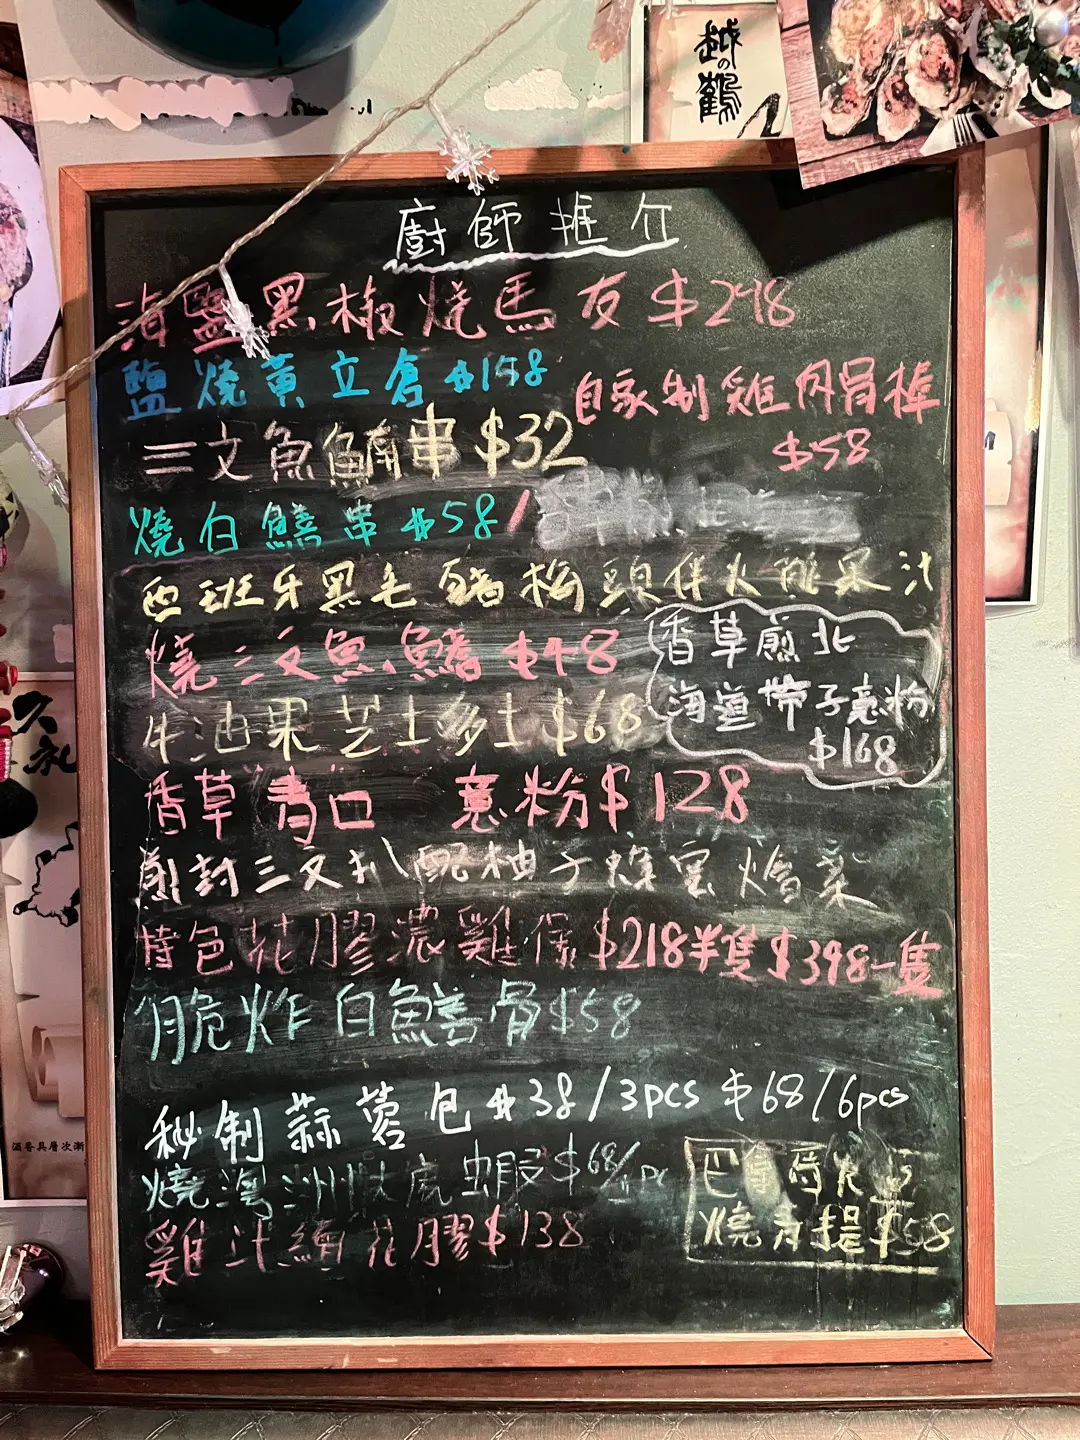 越の鶴
廚師推介
海鹽黑椒燒馬友$298
鹽燒黃立倉$158
自家制雞肉骨棒
$58
三文魚腩串$32
燒白鱔串$58/
西班牙黑毛豬梅頭伴火龍果汁
燒三文魚鰭$48
香草煎北
海道帶子意粉
$168
牛油果芝士多士$68
香草青口 意粉$128
煎封三文扒配柚子蜂蜜燴菜
特色花膠濃雞保$218半隻$398一隻
脆炸白鱔骨$58
秘制蒜蓉包$38/3pcs $68/6pcs
燒灣洲大虎蝦$68/1pc
燒青提$58
雞汁繪花膠$138
久礼
酒香具層次漸